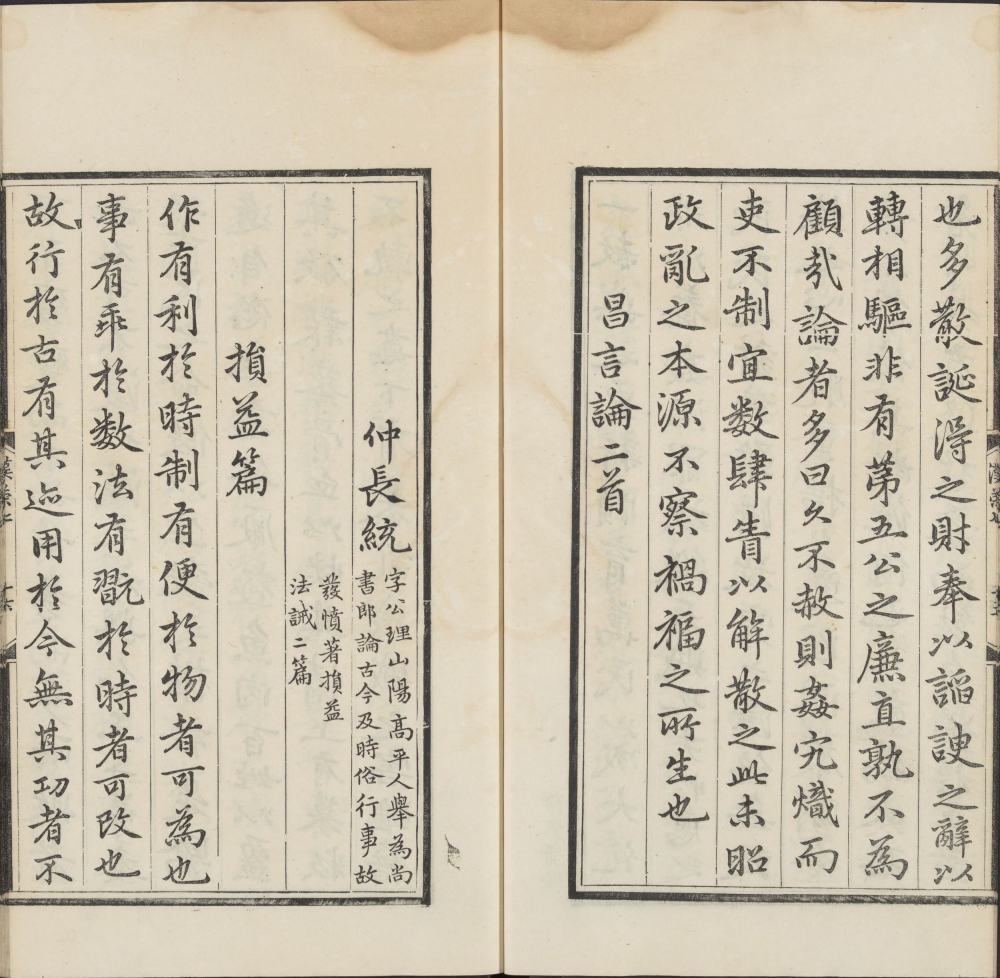 也多散誕得之財奉以謟諛之辭以
轉相驅非有苐五公之廉直孰不為
顧㢤論者多曰久不赦則姦宄熾而
吏不制宜数肆眚以解散之此未昭
政亂之本源不察禍福之所生也
昌言論二首
仲長統
字公理山陽高平人舉為尚
書郎論古今及時俗行事故
發憤著損益
法誡二篇
損益篇
作有利於時制有便於物者可為也
事有乖於数法有翫於時者可改也
故行於古有其迹用於今無其功者不